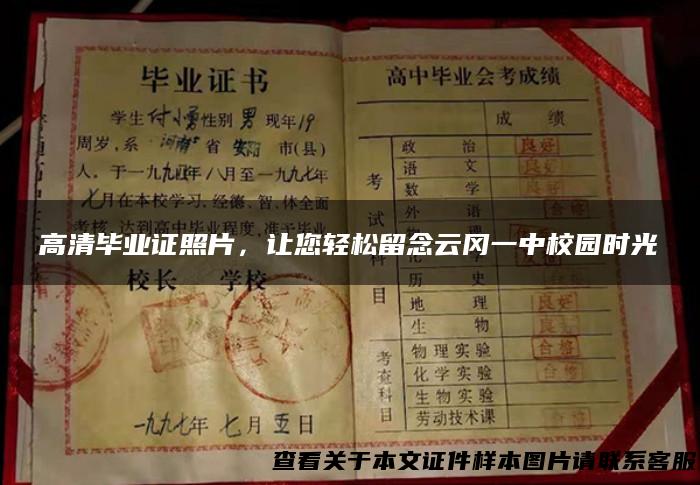 毕业证书
学生付小勇性别男现年19
周岁,系河南省安阳市(县)
人。于一九九四年八月至一九九七年
七月在本校学习,经德、智、体全面
考核,达到高中毕业程度,准于毕业
校长 学校
一九九七年七月五日
高中毕业会考成绩
成绩
考试科目
政治 良好
语文 良好
数学 良好
外语 合格
物理
历史 良好
地理 良好
生物 良好
考查科目
物理实验 合格
化学实验 合格
生物实验
劳动技术课 合格
高清毕业证照片,让您轻松留念云冈一中校园时光
查看关于本文证件样本图片请联系客服